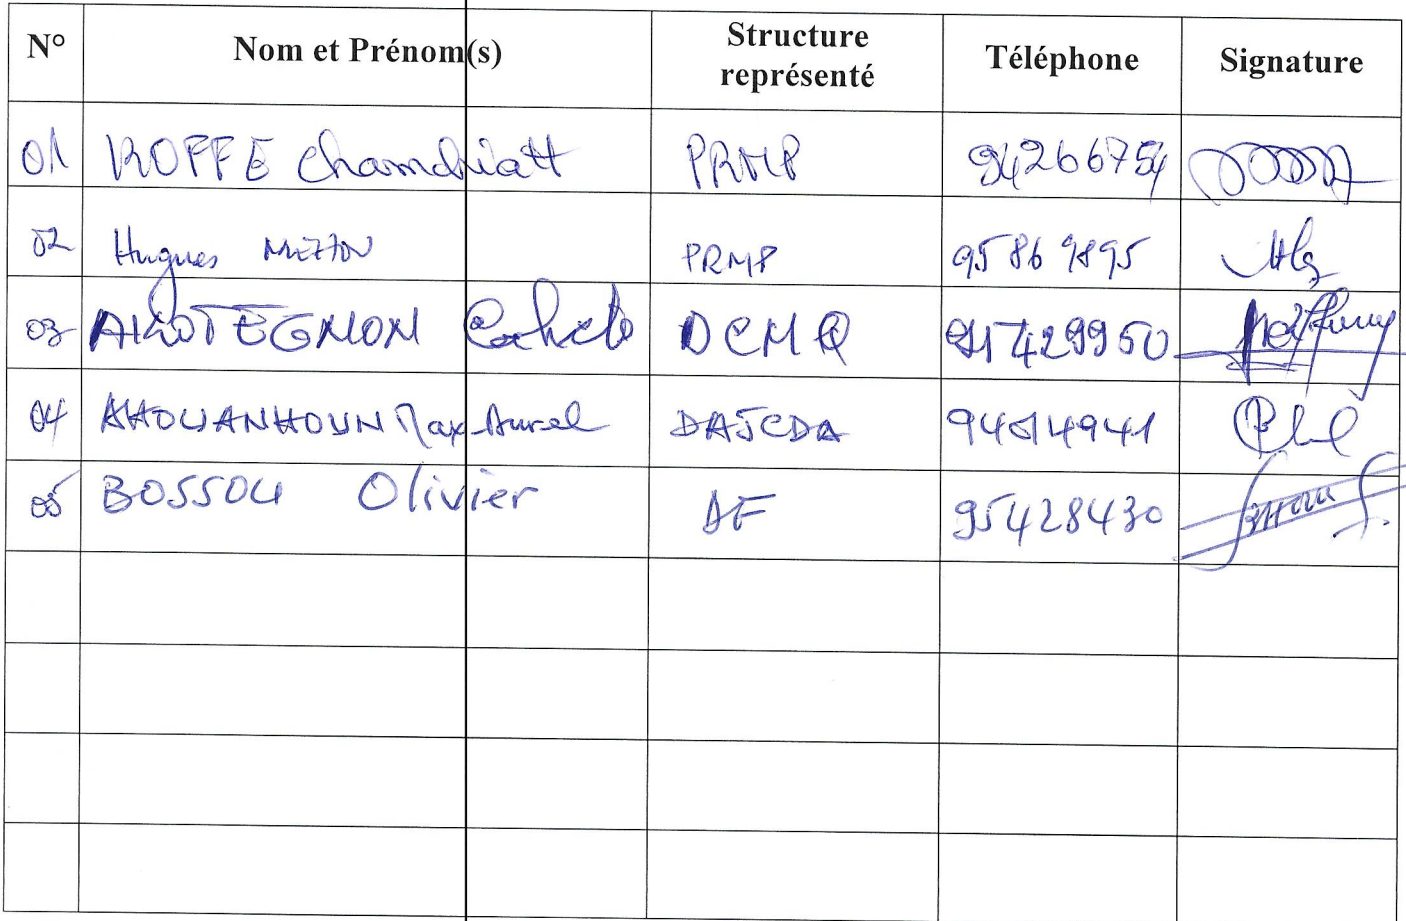 N° Nom et Prénom(s) Structure représenté Téléphone Signature
01 KOFFE Chamdriatt PRMP 94266754
02 Hugues PRMP 95869895
03 DCMQ
04 AHOUANHOUN Max-Aurel DAJCDA 94014941
05 BOSSOU Olivier AF 95428430